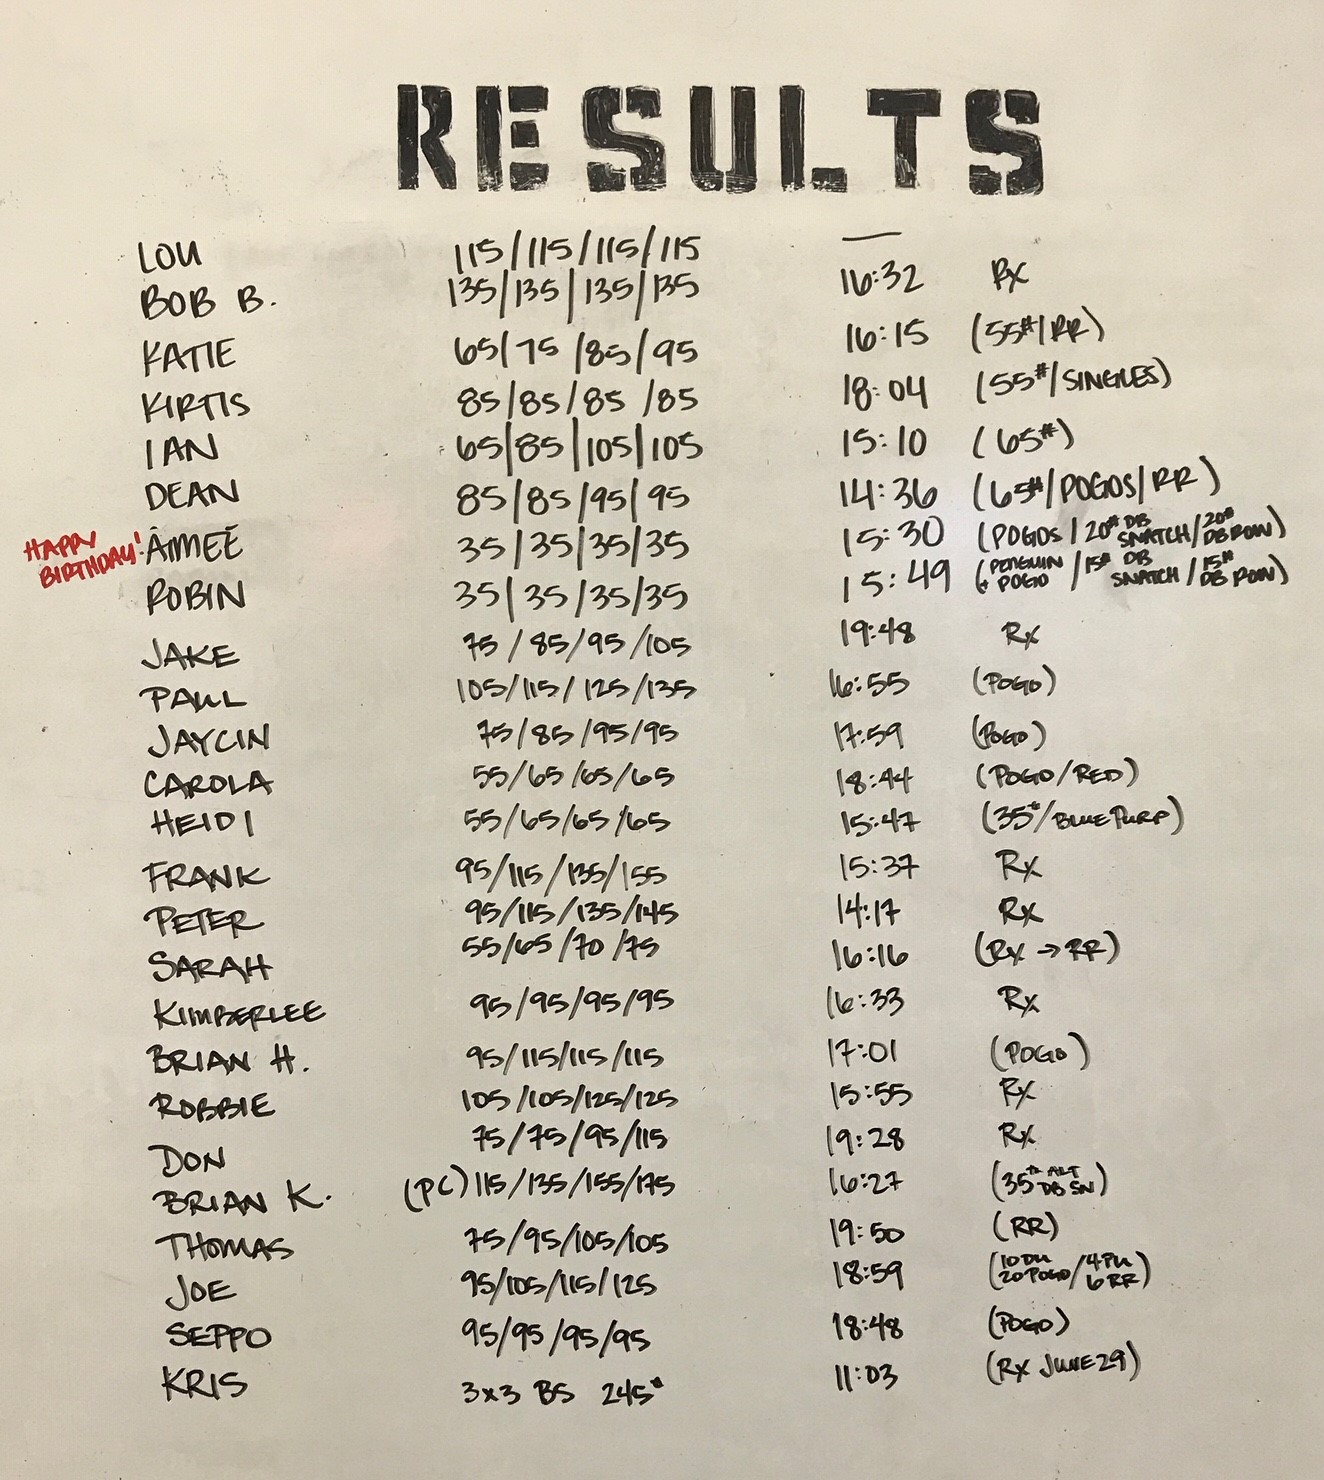 RESULTS
LOU 115/115/115/115 —
BOB B. 135/135/135/135 16:32 Rx
KATIE 65/75/85/95 16:15 (55#/RR)
KIRTIS 85/85/85/85 18:04 (55#/SINGLES)
IAN 65/85/105/105 15:10 (65#)
DEAN 85/85/95/95 14:36 (65#/POGOS/RR)
HAPPY BIRTHDAY! AIMEE 35/35/35/35 15:30 (POGOS/20# DB SNATCH/20# DB ROW)
ROBIN 35/35/35/35 15:49 (PENGUIN + POGO/15# DB SNATCH/15# DB ROW)
JAKE 75/85/95/105 19:48 Rx
PAUL 105/115/125/135 16:55 (POGO)
JAYCIN 75/85/95/95 17:59 (POGO)
CAROLA 55/65/65/65 18:44 (POGO/RED)
HEIDI 55/65/65/65 15:47 (35#/BLUE PURP)
FRANK 95/115/135/155 15:37 Rx
PETER 95/115/135/145 14:17 Rx
SARAH 55/65/70/75 16:16 (Rx → RR)
KIMBERLEE 95/95/95/95 16:33 Rx
BRIAN H. 95/115/115/115 17:01 (POGO)
ROBBIE 105/105/125/125 15:55 Rx
DON 75/75/95/115 19:28 Rx
BRIAN K. (PC) 115/135/155/175 16:27 (35# ALT DB SN)
THOMAS 75/95/105/105 19:50 (RR)
JOE 95/105/115/125 18:59 (10 DU 20 POGO/4 PU 6 RR)
SEPPO 95/95/95/95 18:48 (POGO)
KRIS 3x3 BS 245# 11:03 (Rx JUNE 29)